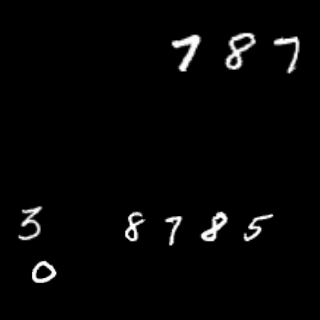 787
3 8785
0